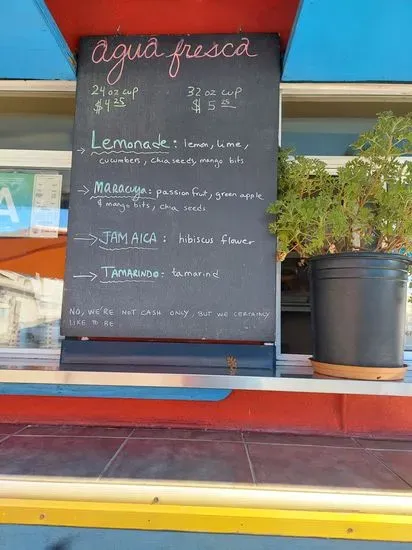 agua fresca
24 oz cup 32 oz cup
$4 25 $5 25
→ Lemonade: lemon, lime,
cucumbers, chia seeds, mango bits
→ Maracuya: passion fruit, green apple
& mango bits, chia seeds
→ JAMAICA: hibiscus flower
→ TAMARINDO: tamarind
NO, WE'RE NOT CASH ONLY, BUT WE CERTAINLY
LIKE TO BE
A